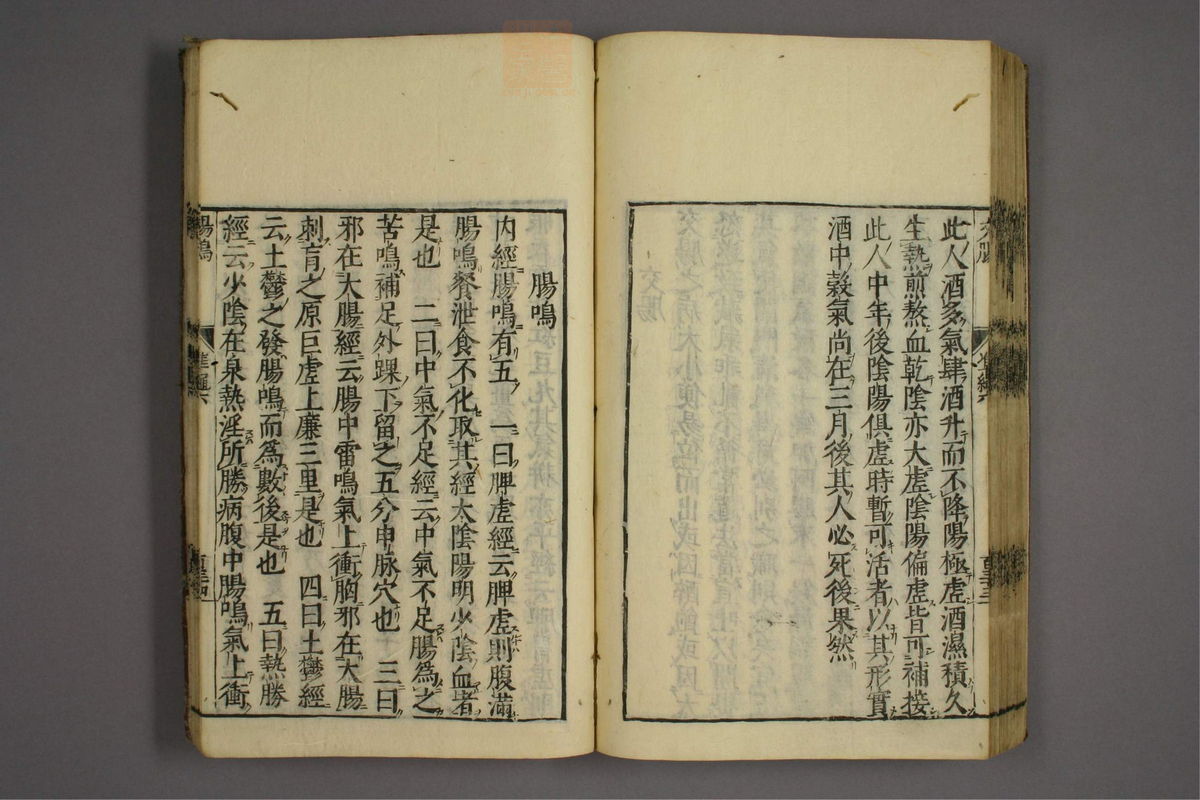 此人酒多氣肆酒升而不降陽極虛酒濕積久
生熱煎熬血乾陰亦大虛陰陽偏虛皆可補接
此人中年後陰陽俱虛時暫可活者以其形實
酒中穀氣尚在三月後其人必死後果然
腸鳴
内經腸鳴有五 一曰脾虛經云脾虛則腹滿
腸鳴飱泄食不化取其經太陰陽明少陰血者
是也 二曰中氣不足經云中氣不足腸爲之
苦鳴補足外踝下留之五分申脉穴也 三曰
邪在大腸經云腸中雷鳴氣上衝胸邪在大腸
刺肓之原巨虛上廉三里是也 四曰土鬱經
云土鬱之發腸鳴而爲數後是也 五曰熱勝
經云少陰在泉熱淫所勝病腹中腸鳴氣上衝
腸鳴